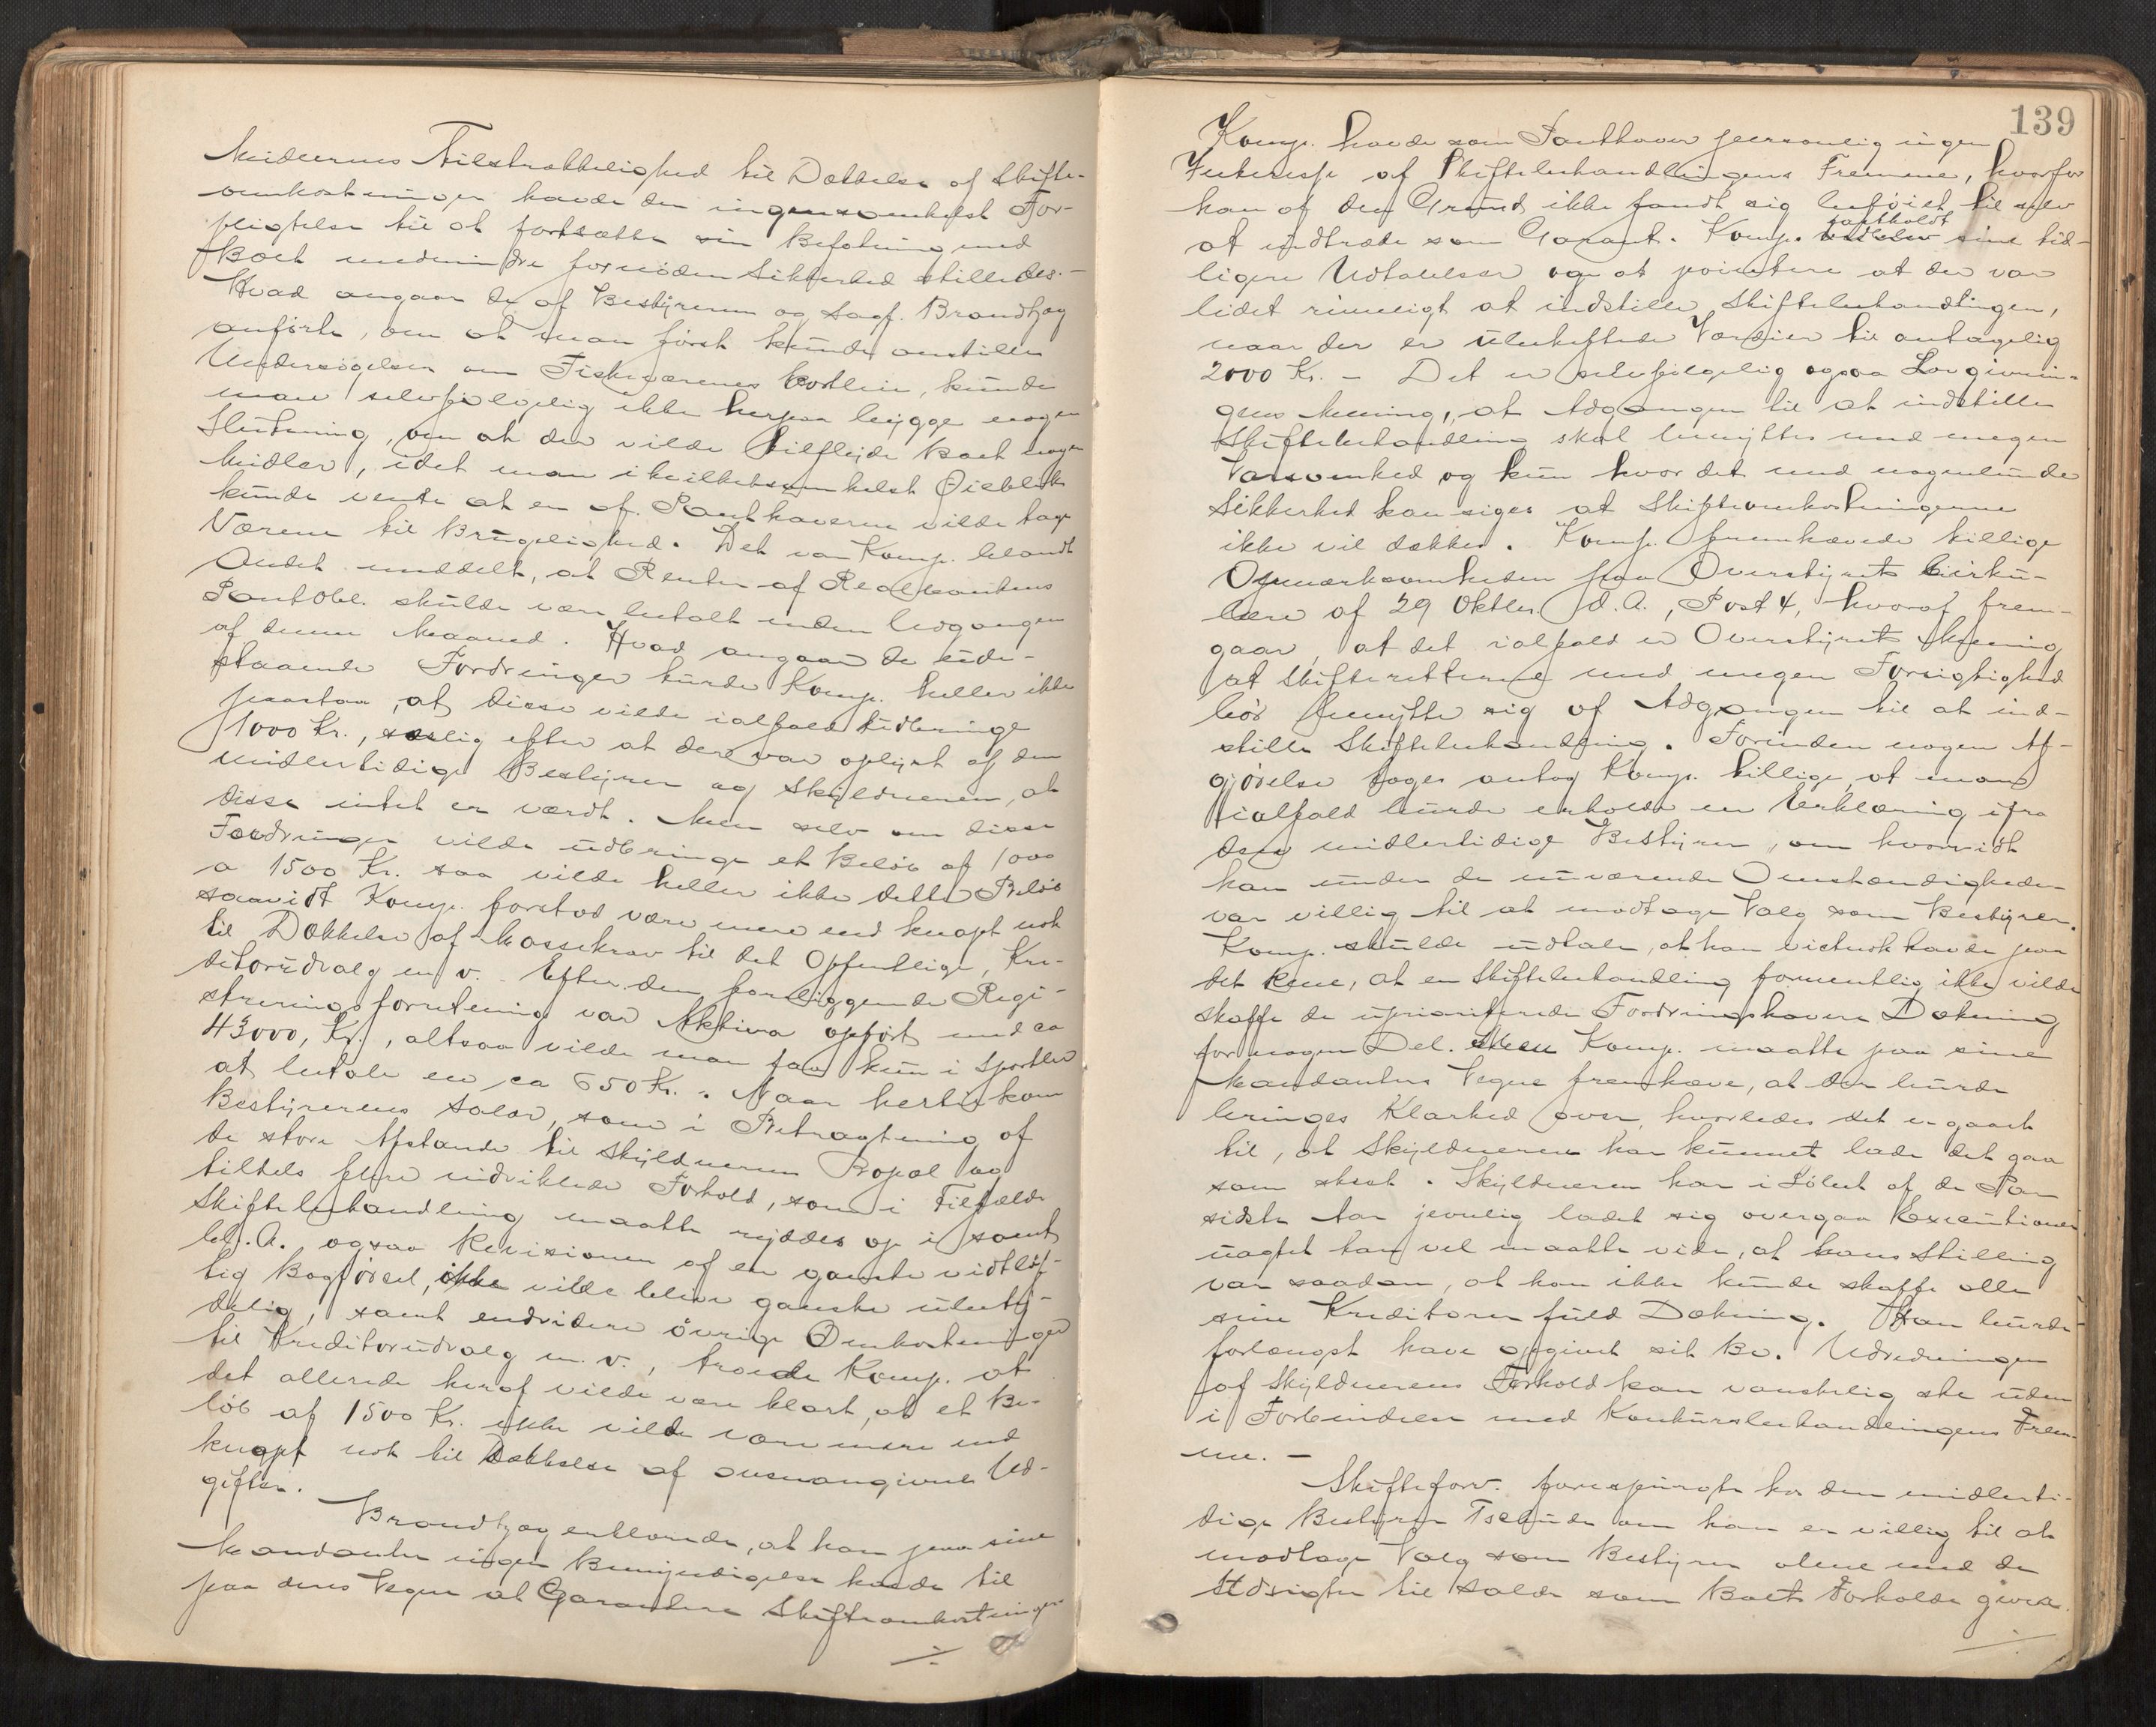 Midlernes Tilstrækkelighed til Dækkelse af Skifte-
omkostninger havde den ingensomhelst For-
pligtelse til at fortsætte sin Befatning med
Boet medmindre fornøden Sikkerhed stilledes. -
Hvad angaar de af Bestyreren og Sagf. Brandtzæg
anførte, om at man først kunde anstille
Undersøgelser om Fiskeværenes Kortleie, kunde
man selvfølgelig ikke herpaa bygge nogen
Slutning, om at der vilde tilflyde Boet nogen
Midler, idet man i hvilketsomhelst Øieblik
kunde vente at en af Panthaverne vilde tage
Værene til Brugelighed. Det var Komp. blandt
Andet meddelt, at Renter af Realkautions
Pantobl. skulde være betalt inden Udgangen
af denne Maaned. Hvad angaar de ude-
staaende Fordringer turde Komp. heller ikke
paastaa, at disse vilde ialfald udbringe
1000 Kr., særlig efter at der var oplyst af den
midlertidige Bestyrer og Skyldneren, at
disse intet er værdt. Men selv om disse
Fordringer vilde udbringe et Beløb af 1000
a 1500 Kr. saa vilde heller ikke dette Beløb
saavidt Komp. forstod være mere end knapt nok
til Dækkelse af Massekrav til det Offentlige, Kre-
ditorudvalg m. v. Efter den foreliggende Regi-
streringsforretning var Aktiva opført med ca
43000, Kr., altsaa vilde man faa kun i Sportler
at betale en ca 650 Kr. Naar hertil kom
Bestyrerens Salær, som i Betragtning af
de store Afstande til Skyldnerens Bopæl og
tildels flere indviklede Forhold, som i Tilfælde
Skiftebehandling maatte ryddes op i samt
bl. A. ogsaa Revisionen af en ganske vidtløf-
tig Bogførsel, ikke vilde blive ganske ubety-
delig, samt endvidere øvrige Omkostninger
til Kreditorudvalg m. v., troede Komp. at
det allerede heraf vilde være klart, at et Be-
løb af 1500 Kr. ikke vilde være mere end
knapt nok til Dækkelse af ovenangivne Ud-
gifter.
Brandtzæg erklærede, at han paa sine
Mandanter ingen Bemyndigelse havde til
paa deres Vegne at Garantere Skifteomkostninger
÷
139
Komp. havde som Panthaver personlig ingen
Interesse af Skiftebehandlingens Fremme, hvorfor
han af den Grund ikke fandt sig beføiet til selv
at indtræde som Garant. Komp. fastholdt sine tid-
ligere Udtalelser og at pointere at der var
lidet rimeligt at indstille Skiftebehandlingen,
naar der er ubeheftede Værdier til antagelig
2000 Kr. - Det er selvfølgelig ogsaa Lovgivnin-
gens Mening, at Adgangen til at indstille
Skiftebehandling skal benyttes med megen
Varsomhed og kun hvor det med nogenlunde
Sikkerhed kan siges at Skifteomkostningerne
ikke vil dækkes. Komp. fremhævede tillige
Opmærksomheden paa Overstyrets Cirku-
lære af 29 Oktbr. d. A., Post 4, hvoraf frem-
gaar, at det ialfald er Overstyrets Mening
at Skifteretterne med megen Forsigtighed
bør benytte sig af Adgangen til at ind-
stille Skiftebehandling. Forinden nogen Af-
gjørelse tages antog Komp. tillige, at man
ialfald burde erholde en Erklæring ifra
den midlertidige Bestyrer, om hvorvidt
han under de nuværende Omstændigheder
var villig til at modtage Valg som Bestyrer.
Komp. skulde udtale, at han vistnok havde paa
det Rene, at en Skiftebehandling formentlig ikke vilde
skaffe de uprioriterede Fordringshavere Dækning
for nogen Del. Men Komp. maatte paa sine
Mandanters Vegne fremhæve, at der burde
bringes Klarhed over, hvorledes det er gaaet
til, at Skyldneren har kunnet lade det gaa
som skeet. Skyldneren har i Løbet af de Par
sidste Aar jevnlig ladet sig overgaa Executioner
uagtet han vel maatte vide, at hans Stilling
var saadan, at han ikke kunde skaffe alle
sine Kreditorer fuld Dækning. Han burde
forlængst have opgivet sit Bo. Udredningen
af Skyldnerens Forhold kan vanskelig ske uden
i Forbindelse med Konkursbehandlingens Frem-
me. -
Skifteforv. forespurgte hos den midlerti-
dige Bestyrer om han er villig til at
modtage Valg som Bestyrer alene med de
Udsigter til Salær som Boets Forholde giver.
÷